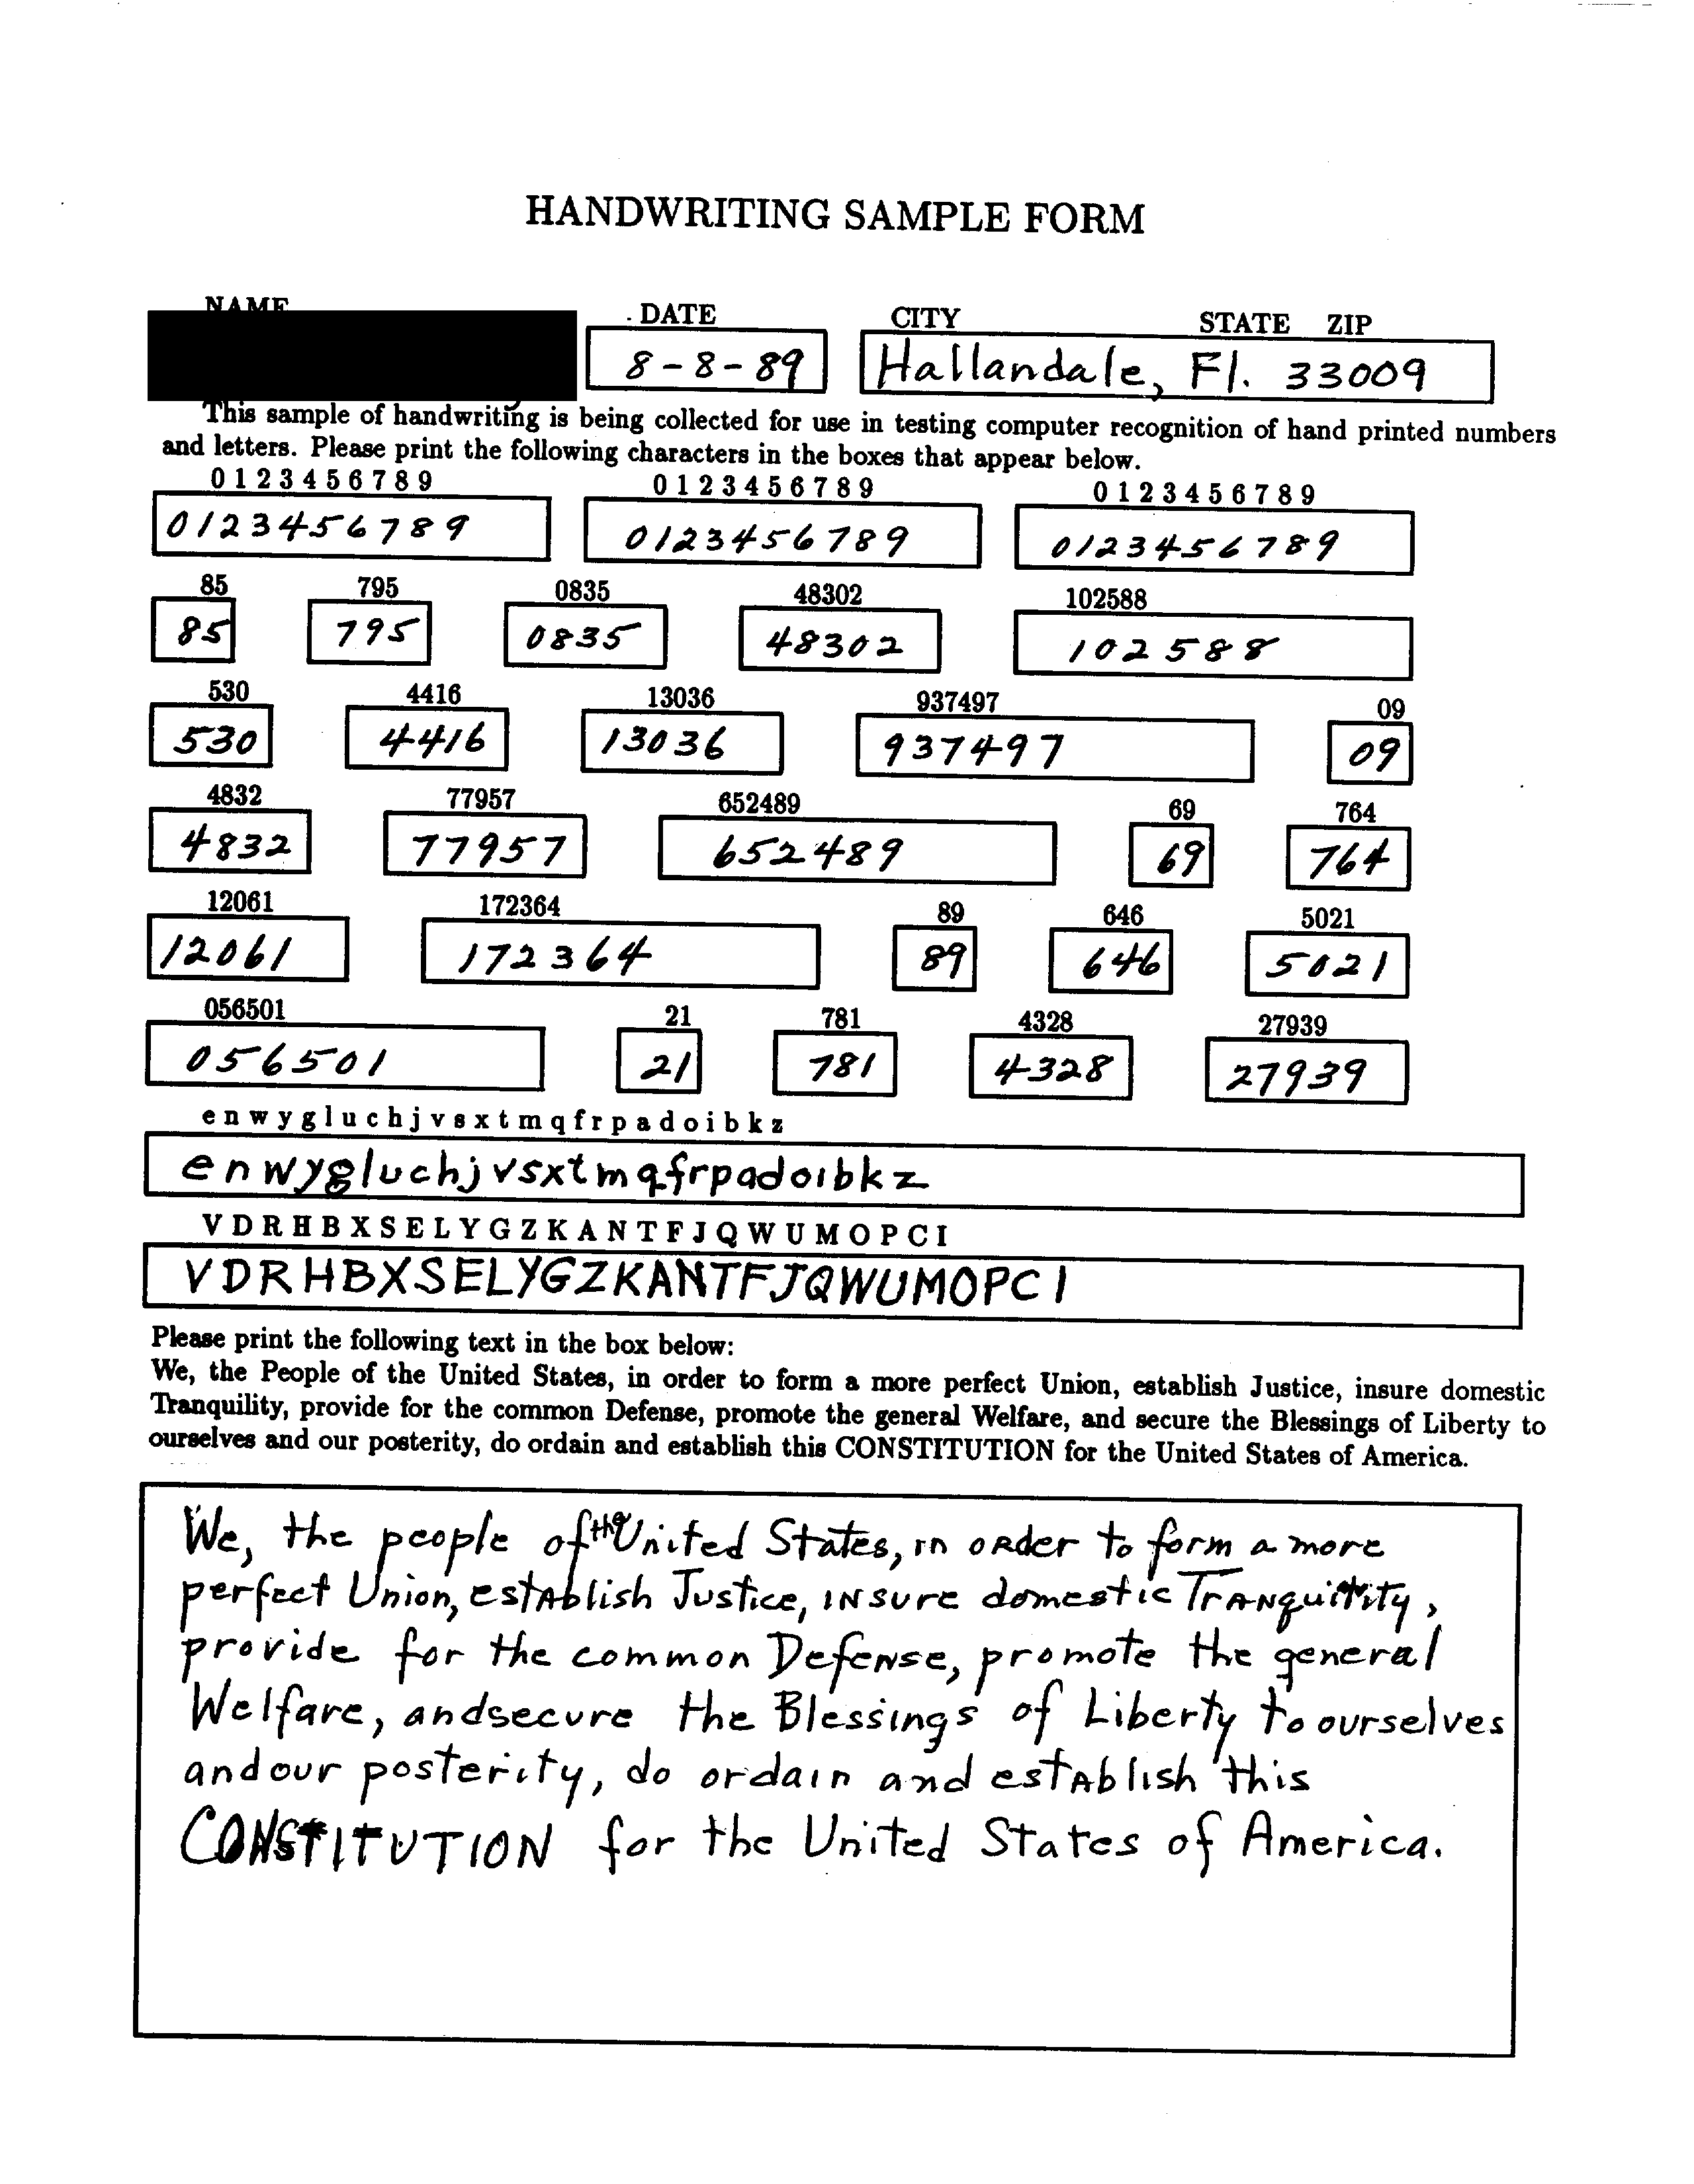 HANDWRITING SAMPLE FORM
NAME DATE CITY STATE ZIP
8-8-89 Hallandale, Fl. 33009
This sample of handwriting is being collected for use in testing computer recognition of hand printed numbers
and letters. Please print the following characters in the boxes that appear below.
0 1 2 3 4 5 6 7 8 9 0 1 2 3 4 5 6 7 8 9 0 1 2 3 4 5 6 7 8 9
0123456789 0123456789 0123456789
85 795 0835 48302 102588
85 795 0835 48302 102588
530 4416 13036 937497 09
530 4416 13036 937497 09
4832 77957 652489 69 764
4832 77957 652489 69 764
12061 172364 89 646 5021
12061 172364 89 646 5021
056501 21 781 4328 27939
056501 21 781 4328 27939
e n w y g l u c h j v s x t m q f r p a d o i b k z
enwygluchjvsxtmqfrpadoibkz
V D R H B X S E L Y G Z K A N T F J Q W U M O P C I
VDRHBXSELYGZKANTFJQWUMOPCI
Please print the following text in the box below:
We, the People of the United States, in order to form a more perfect Union, establish Justice, insure domestic
Tranquility, provide for the common Defense, promote the general Welfare, and secure the Blessings of Liberty to
ourselves and our posterity, do ordain and establish this CONSTITUTION for the United States of America.
We, the people of the United States, in order to form a more
perfect Union, establish Justice, insure domestic Tranquility,
provide for the common Defense, promote the general
Welfare, andsecure the Blessings of Liberty to ourselves
and our posterity, do ordain and establish this
CONSTITUTION for the United States of America.